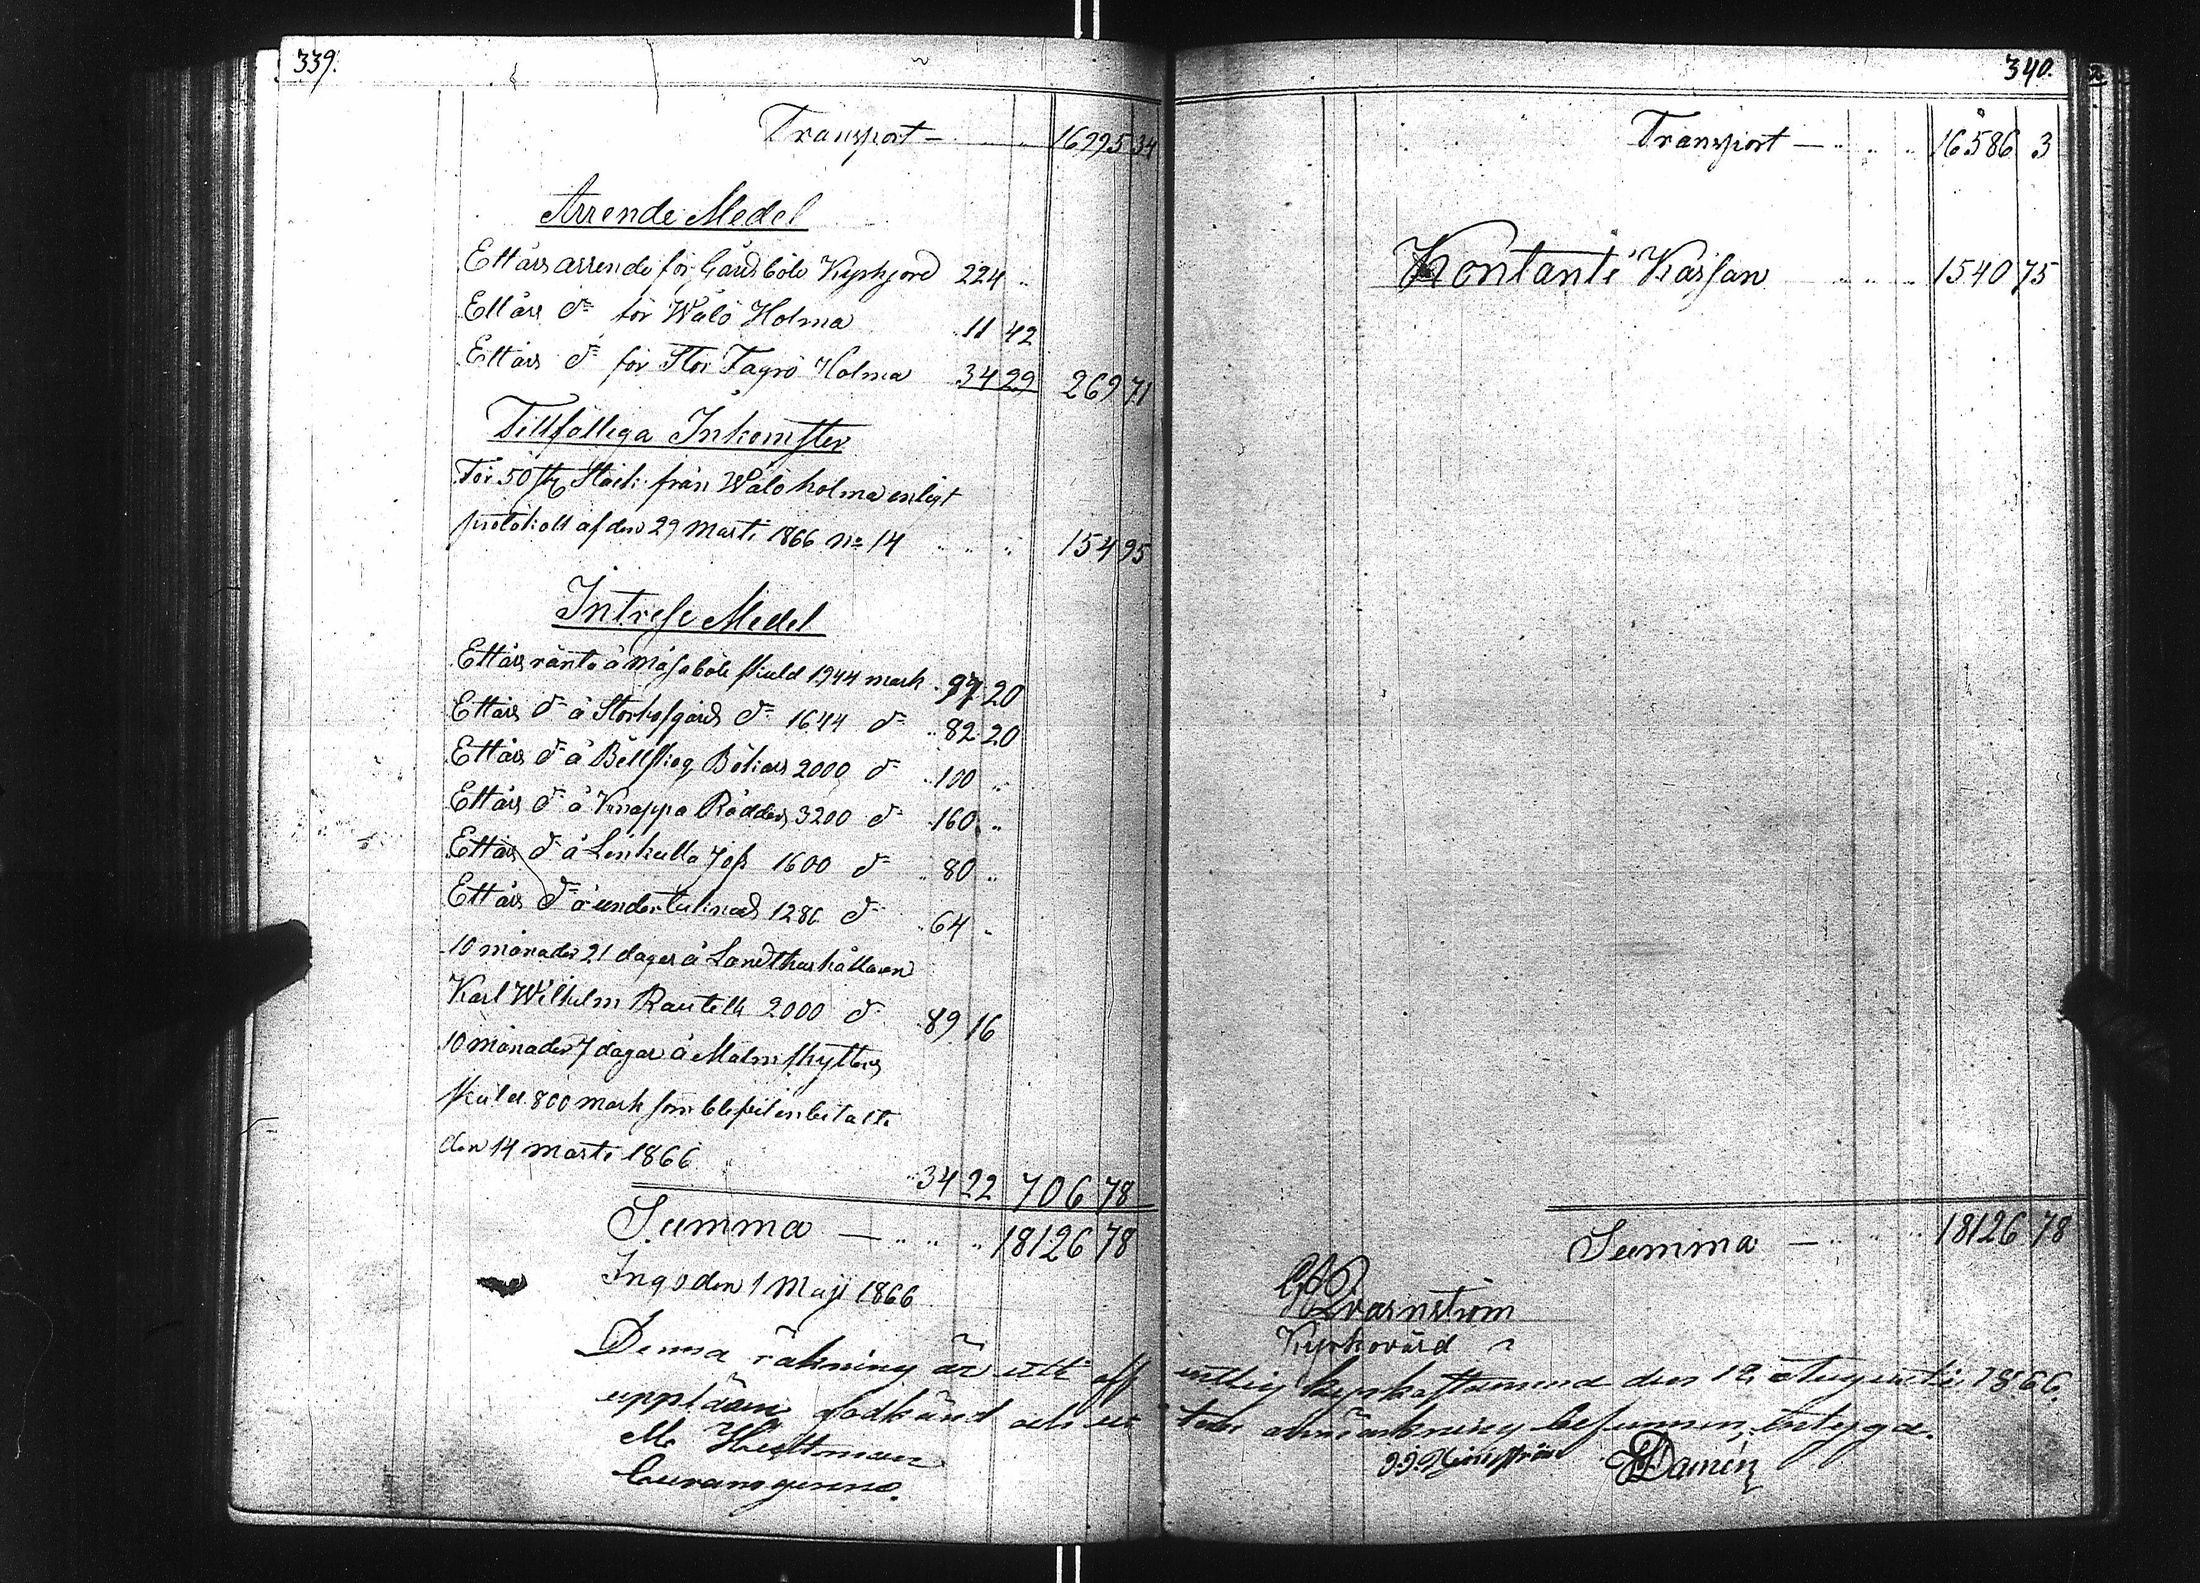 339.
Transport — 16995 34
Arrende Medel
Ett års arrende för Gårdsböle Kyrkjord 224 "
Ett års do för Wålö Holma 11 42
Ett års do för Stor Fagrö Holma 34 29 269 71
Tillfälliga Inkomster
För 50 st Stock från Wålö holma enligt
protokoll af den 29 Marti 1866 No 14 154 95
Intresse Medel
Ett års ränta å skuld 1944 mark 97 20
Ett års do å Storhofgårds do 1644 do 82 20
Ett års do å Böllskog Bökars 2000 do 100 "
Ett års do å Knappa Rödders 3200 do 160 "
Ett års do å Linkulla 1600 do 80 "
Ett års do å undertecknad 1280 do 64 "
10 månader 21 dagar å Landthushållaren
Karl Wilhelm 2000 do 89 16
10 månader 7 dagar å Malmskytters
skuld 800 mark som blefvit inbetalte
den 14 marti 1866 34 22 706 78
Summa — 18126 78
Ingo den 1 Maji 1866
340.
Transport — 16586 3
Kontant i Kassan 1540 75
Summa — 18126 78
Qvarnström
Kyrkovärd
Denna räkning är uti offentlig kyrkostämma den 12 Augusti 1866
uppläsen, godkänd och utan anmärkning befunnen, intyga.
M. Hästman